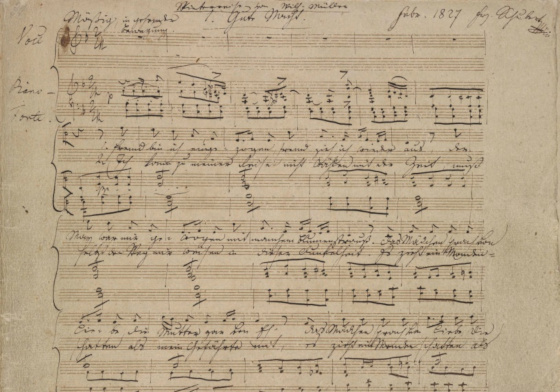 Winterreise von Wilh. Müller
Mäßig, in gehender 1. Gute Nacht. Febr. 1827 Frz. Schubert
Bewegung
Piano-
Forte.
Fremd bin ich einge- zogen fremd zieh ich wieder aus der
Ich kann zu meiner Reise nicht wählen mit der Zeit muß
Mai war mir ge- wogen mit manchem Blumenstrauß. Das Mädchen sprach von
den Weg mir weisen in dieser Dunkelheit Es zieht ein Monden-
Liebe die Mutter gar von Eh' das Mädchen sprach von Liebe die
schatten als mein Gefährte mit es zieht ein Monden schatten als